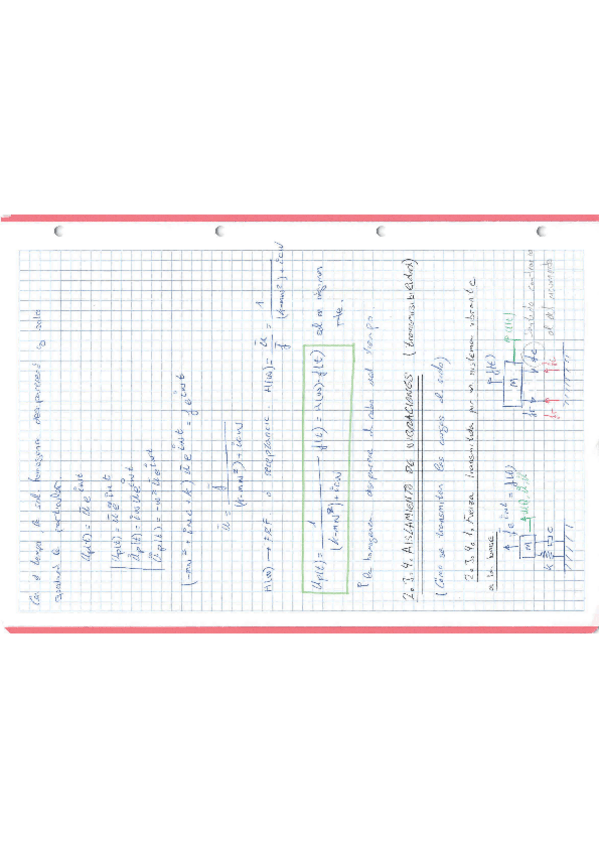 Con el tiempo, la sol. homogénea desaparecerá → solo
quedará la particular.
Up(t) = ū e^iωt
Up(t) = ū e^iωt
U̇p(t) = iω ū e^iωt
Üp(t) = -ω² ū e^iωt
(-mω² + iωc + k) ū e^iωt = f̄ e^iωt
ū = f̄ / ((k-mω²) + icω)
H(ω) → FRF. o receptancia. H(ω) = ū / f̄ = 1 / ((k-mω²) + icω)
Up(t) = 1 / ((k-mω²) + icω) · f(t) = H(ω) · f(t)
sol en régimen
La homogénea desaparece al cabo del tiempo
2.3.4. AISLAMIENTO DE VIBRACIONES (transmisibilidad)
(Cómo se transmiten las cargas al suelo)
2.3.4.1. Fuerza transmitida por un sistema vibrante
a la base
f̄ e^iωt = f(t)
M
k
c
f(t)
M
sentido contrario
al del movimiento